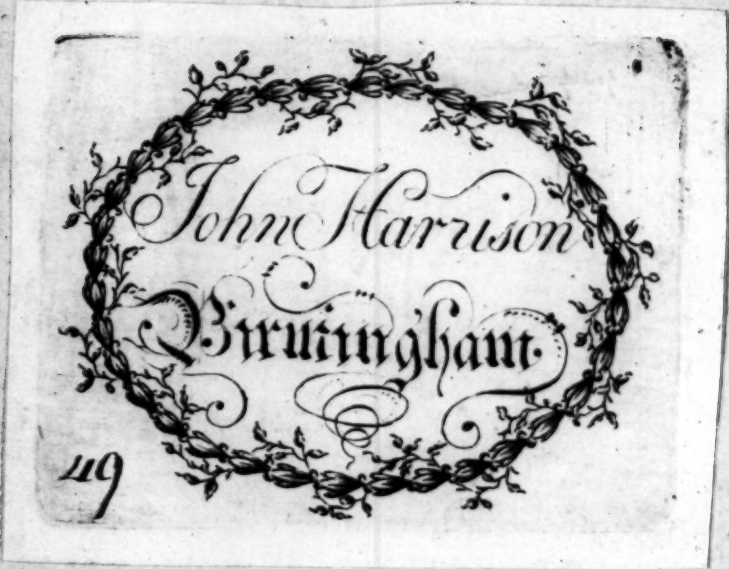 John Harrison
Birmingham
49